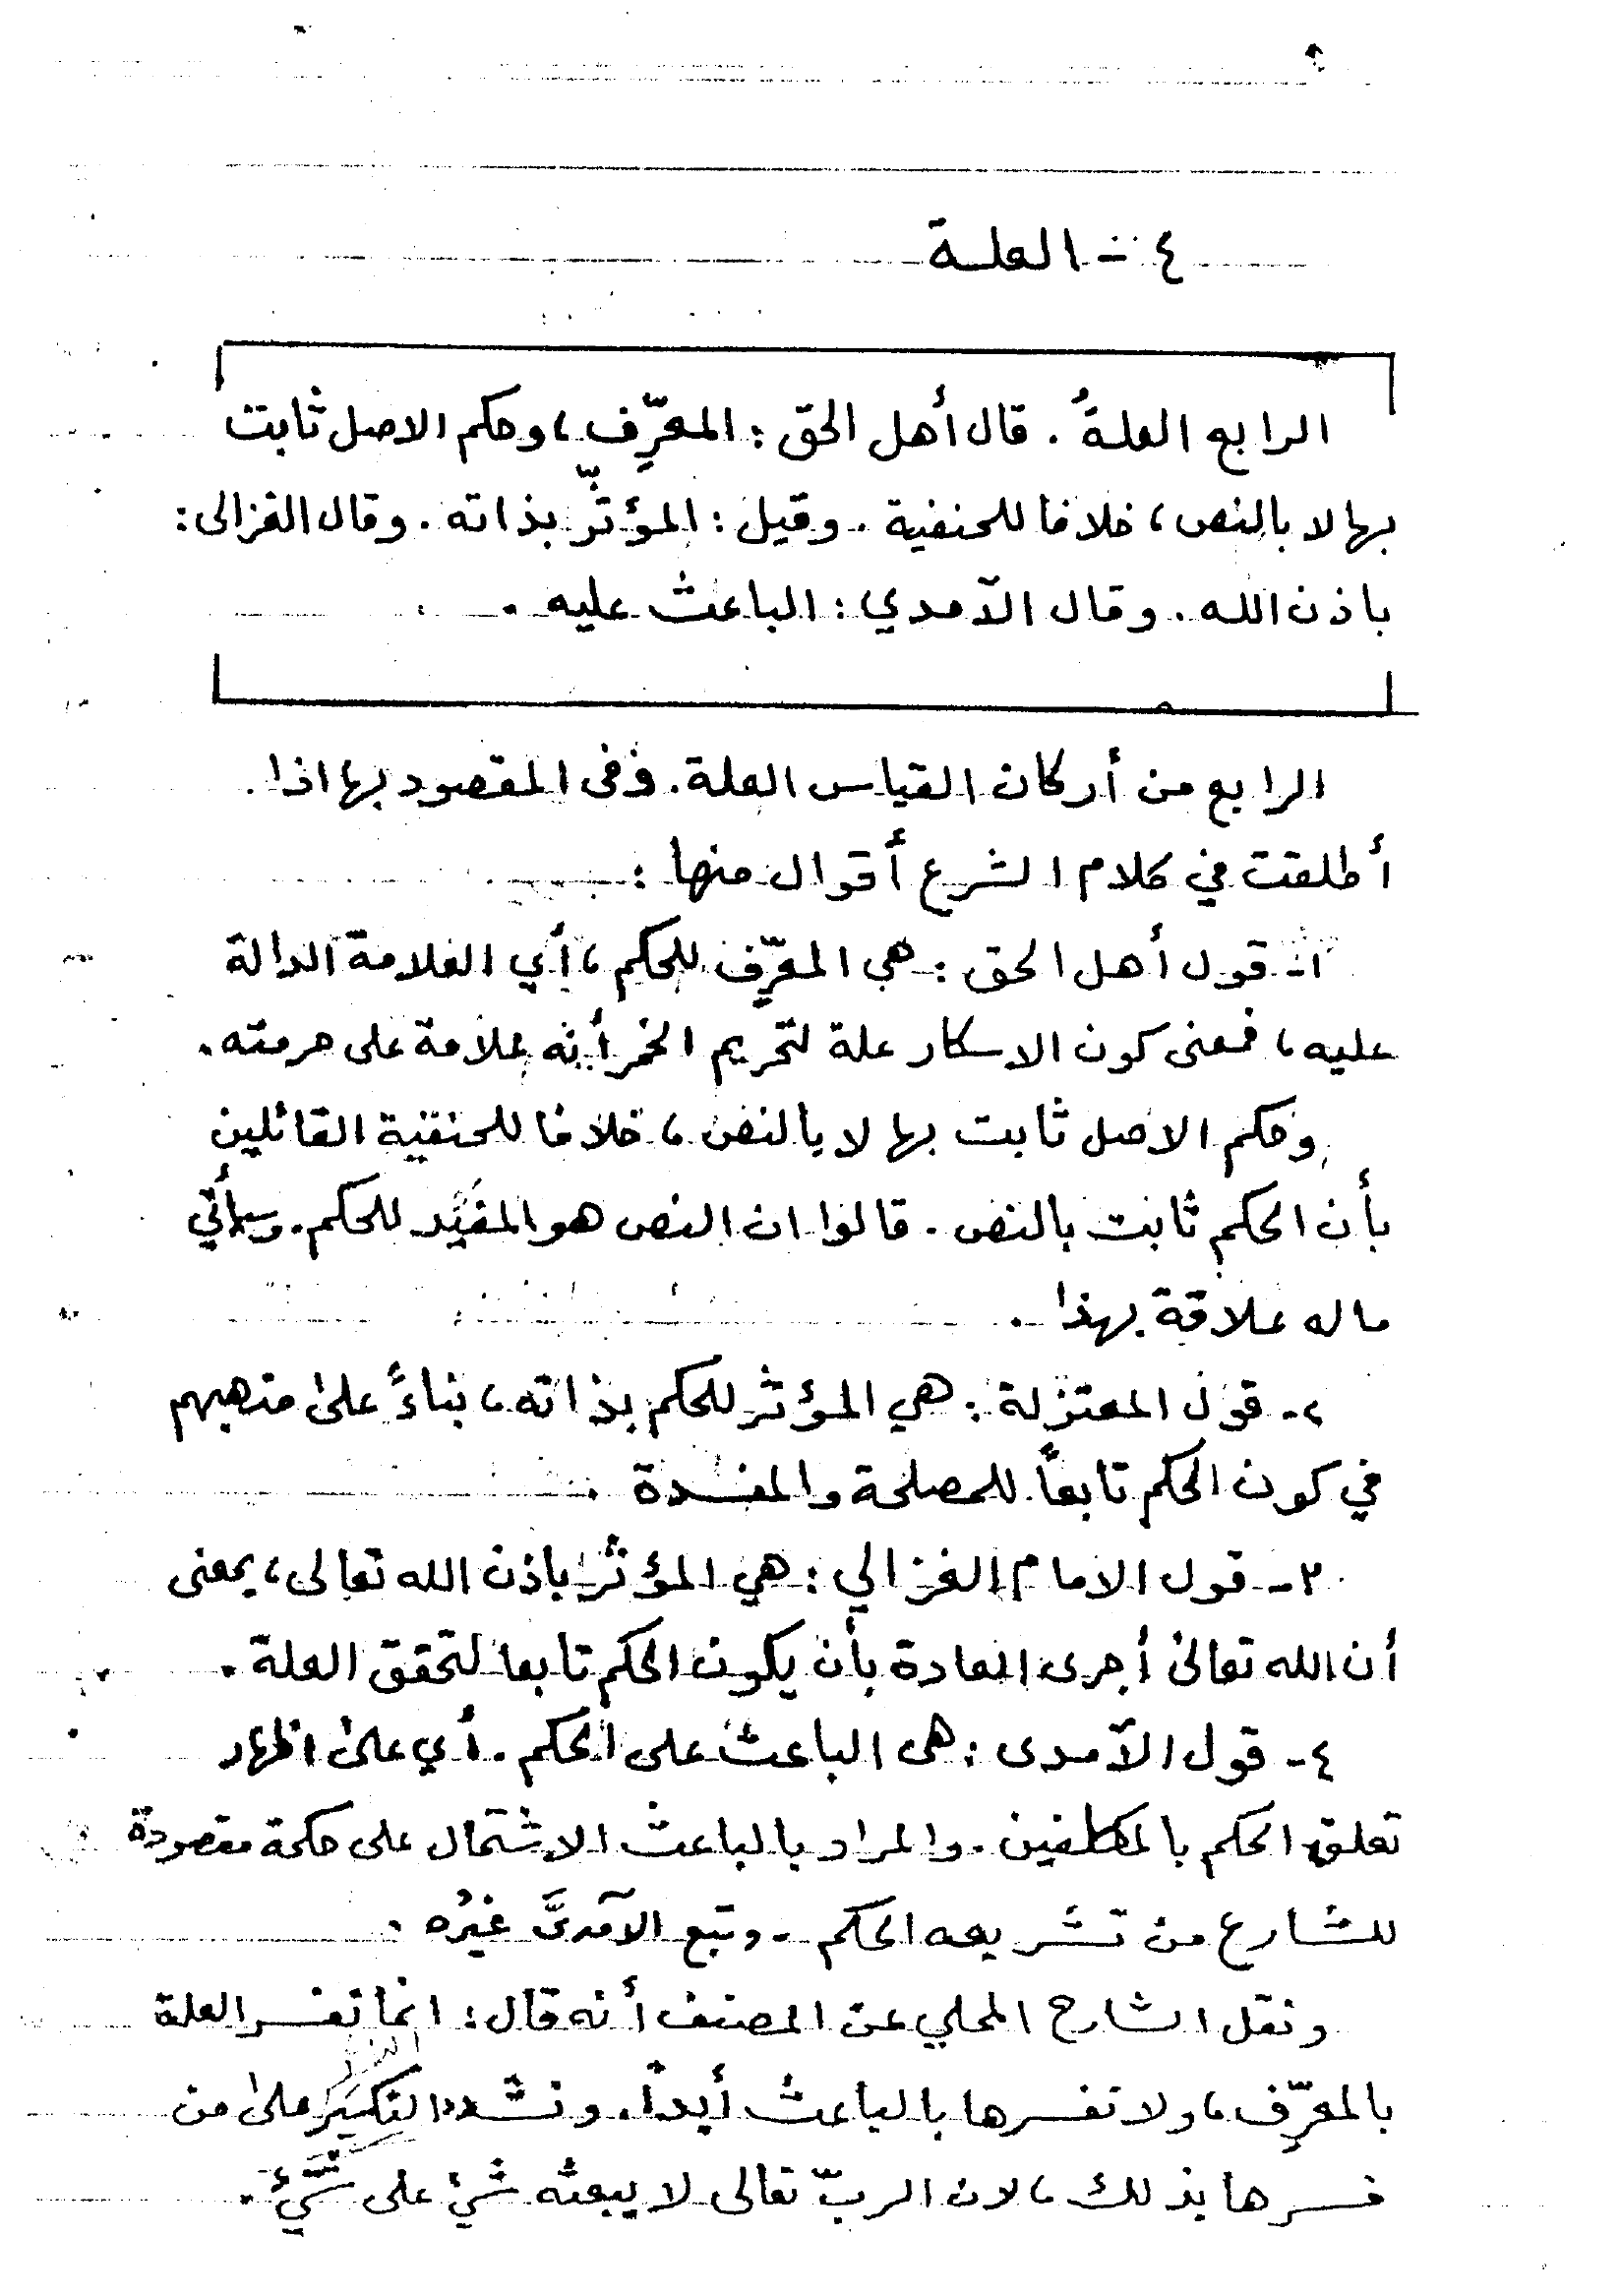 ٤ - العلـة
الرابع العلةُ . قال أهل الحق : المعرِّف ، وحكم الاصل ثابت
بها لا بالنص ، خلافا للحنفية . وقيل : المؤثِّر بذاته . وقال الغزالى :
باذن الله . وقال الآمدي : الباعث عليه .
الرابع من أركان القياس العلة . وفى المقصود بها اذا
أطلقت في كلام الشرع أقوال منها :
١- قول أهل الحق : هى المعرِّف للحكم ، أي العلامة الدالة
عليه ، فمعنى كون الاسكار علة لتحريم الخمر أنه علامة على حرمته .
وحكم الاصل ثابت بها لا بالنص ، خلافا للحنفية القائلين
بأن الحكم ثابت بالنص . قالوا ان النص هو المفيد للحكم . وسيأتي
ماله علاقة بهذا .
٢- قول المعتزلة : هي المؤثر للحكم بذاته ، بناءً على مذهبهم
في كون الحكم تابعاً للمصلحة والمفسدة .
٣- قول الامام الغزالي : هي المؤثر باذن الله تعالى ، بمعنى
أن الله تعالى أجرى العادة بأن يكون الحكم تابعا لتحقق العلة .
٤- قول الآمدى : هى الباعث على الحكم . أي على اظهار
تعلق الحكم بالمكلفين . والمراد بالباعث الاشتمال على حكمة مقصودة
للشارع من تشريعه الحكم . وتبع الآمدىَّ غيرُه .
ونقل الشارح المحلي عن المصنف أنه قال : انما نفسر العلة
بالمعرِّف ، ولا نفسرها بالباعث أبداً . ونشدد النكير على من
فسرها بذلك ، لان الربّ تعالى لا يبعثه شئ على شئ .